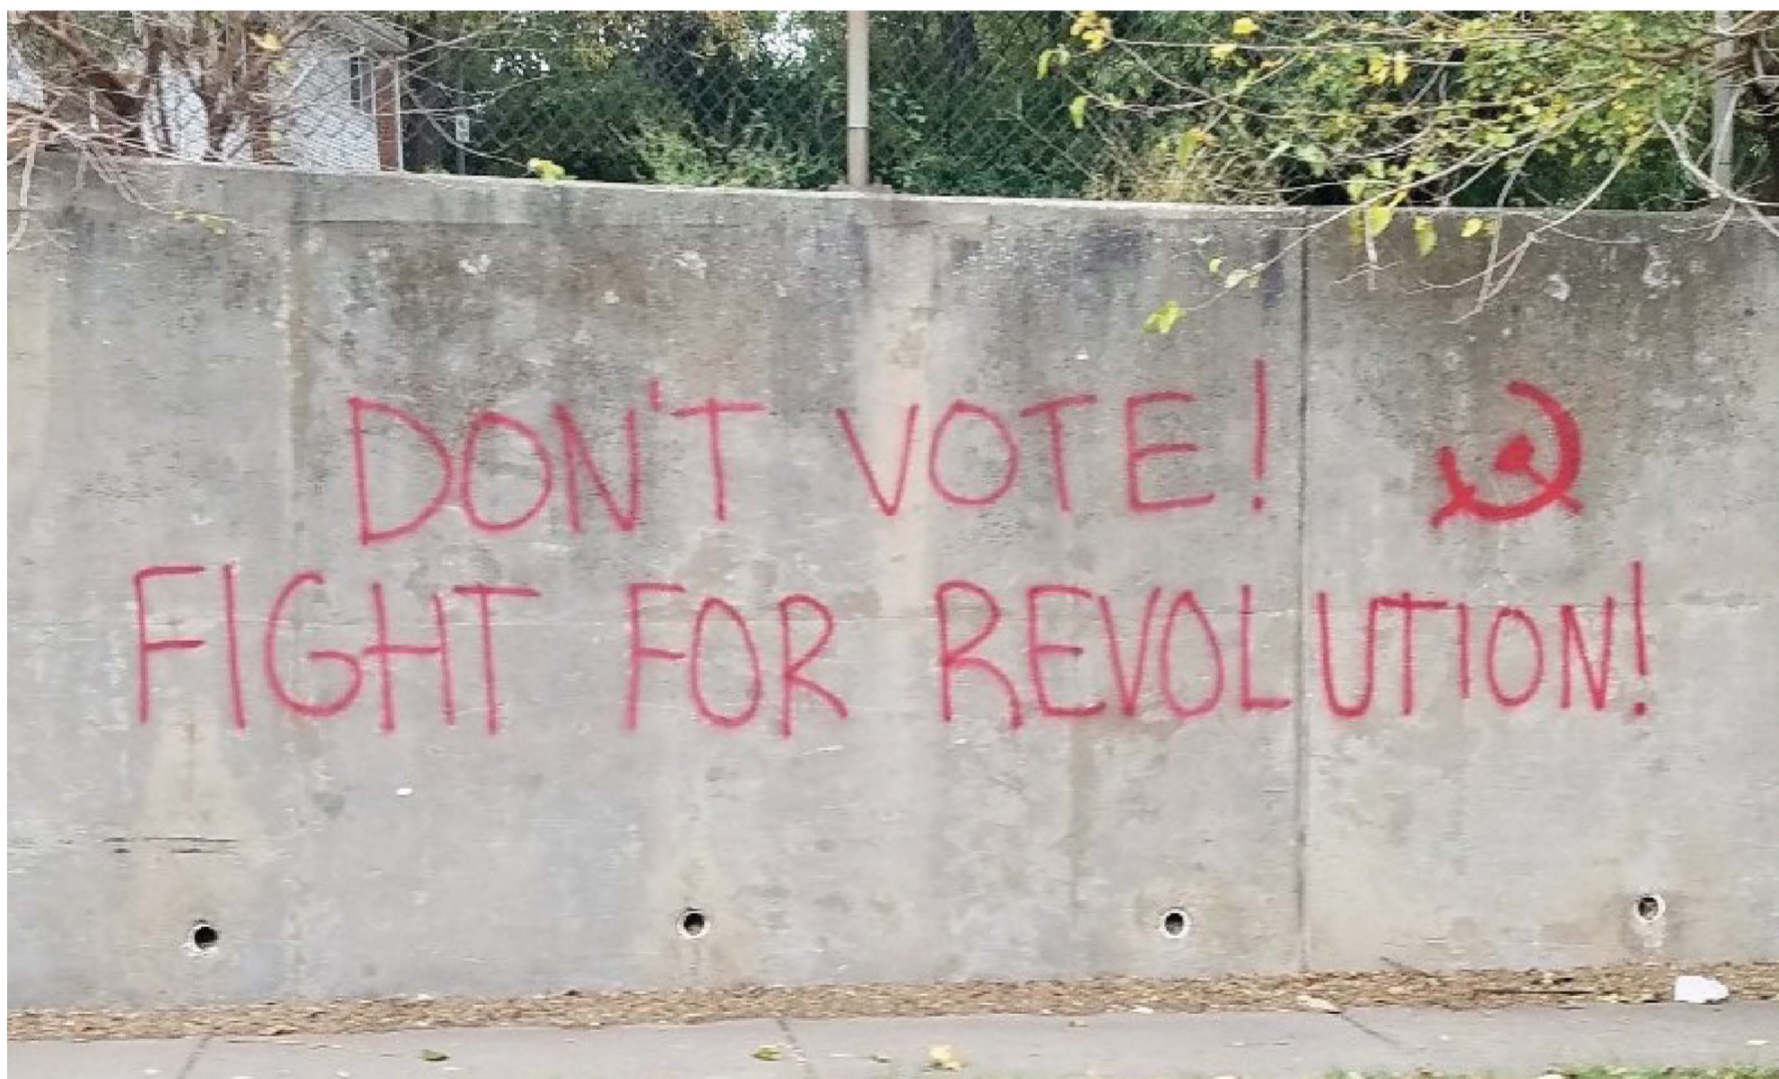 DON'T VOTE!
FIGHT FOR REVOLUTION!